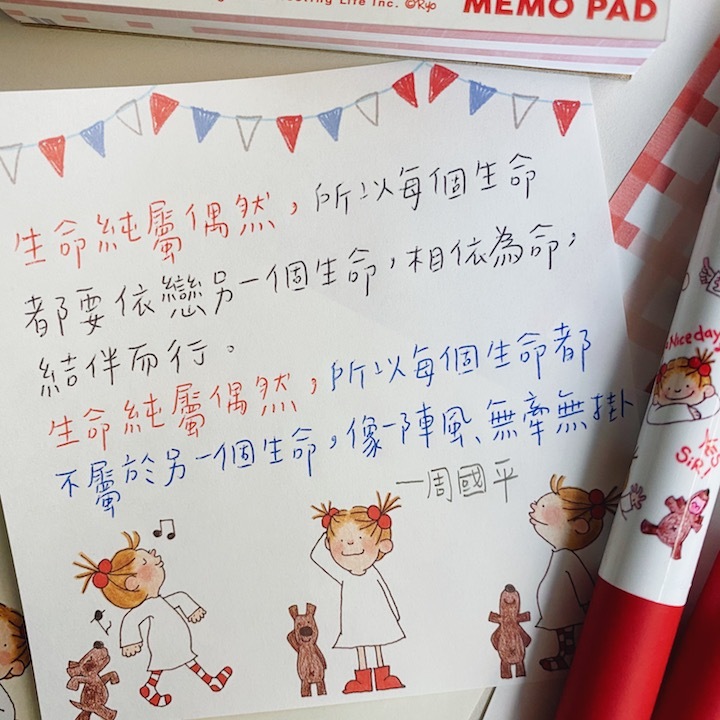 ting Life Inc. ©Ryo
MEMO PAD
生命純屬偶然，所以每個生命
都要依戀另一個生命，相依為命，
結伴而行。
生命純屬偶然，所以每個生命都
不屬於另一個生命，像一陣風、無牽無掛
—周國平
Nice day
SIR!